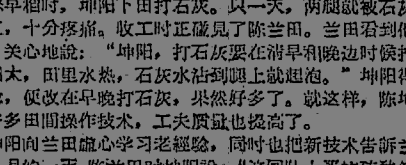 早稻时，坤阳下田打石灰。只一天，两腿就被石灰
，十分疼痛。收工时正碰見了陈兰田。兰田看到他
关心地說：“坤阳，打石灰要在清早和晚边时候
太，田里水热，石灰水沾到腿上就起泡。”坤阳
，便改在早晚打石灰，果然好多了。就这样，陈
多田間操作技术，工夫质量也提高了。
坤阳向兰田虛心学习老經驗，同时也把新技术告訴兰